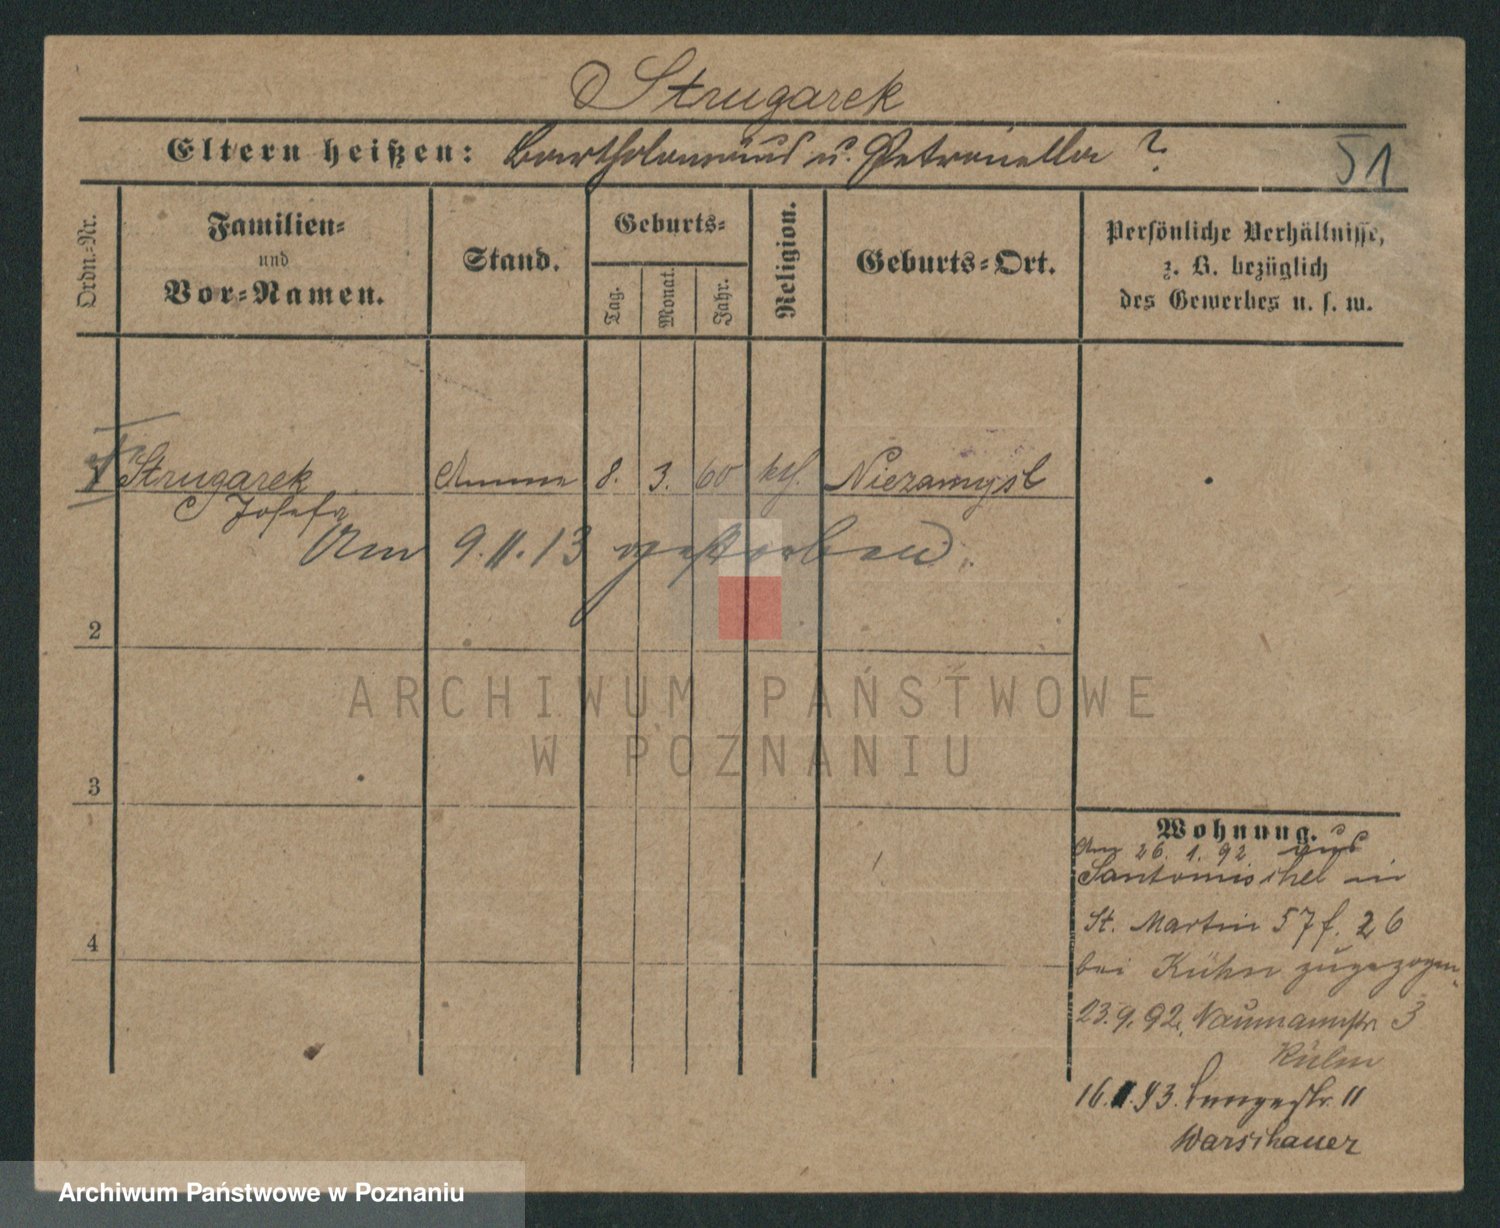 Strugarek
Eltern heißen: Bartholomäus u. Petronella ?
51
Ordn.-Nr.
Familien-
und
Vor-Namen.
Stand.
Geburts-
Tag.
Monat.
Jahr.
Religion.
Geburts-Ort.
Persönliche Verhältnisse,
z. B. bezüglich
des Gewerbes u. s. w.
Strugarek Amme 8. 3. 60 kth. Niezamysl
Josefa
Am 9. 11. 13 gestorben.
2
3
4
Wohnung.
Am 26. 1. 92 aus
Santomischel in
St. Martin 57 f. 26
bei Kühn zugezogen.
23. 9. 92. Naumannstr. 3
Kühn
16. 93. Langestr. 11
Warschauer
ARCHIWUM PAŃSTWOWE
W POZNANIU
Archiwum Państwowe w Poznaniu